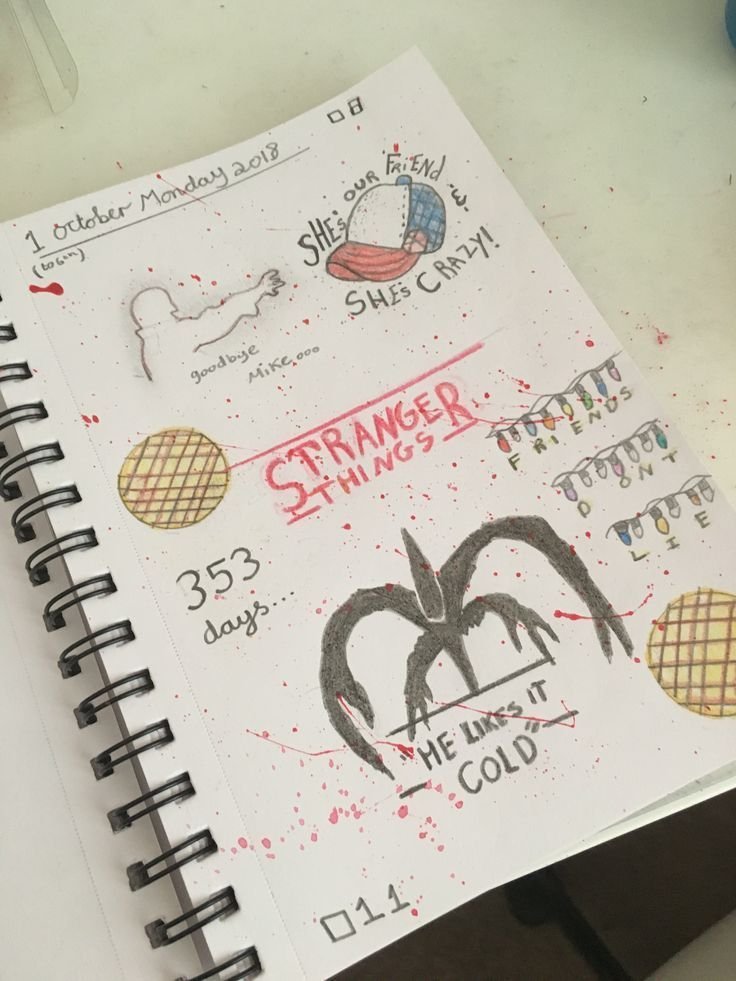 08
1 October Monday 2018
SHE'S OUR FRiEND &
SHE'S CRAZY!
goodbye
Mike...
STRANGER
THINGS
FRIENDS
DONT
LIE
353
days...
"HE LIKES IT
COLD"
011